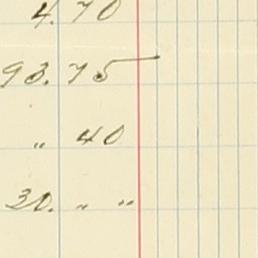 4.70
93.75
" 40
30. " "